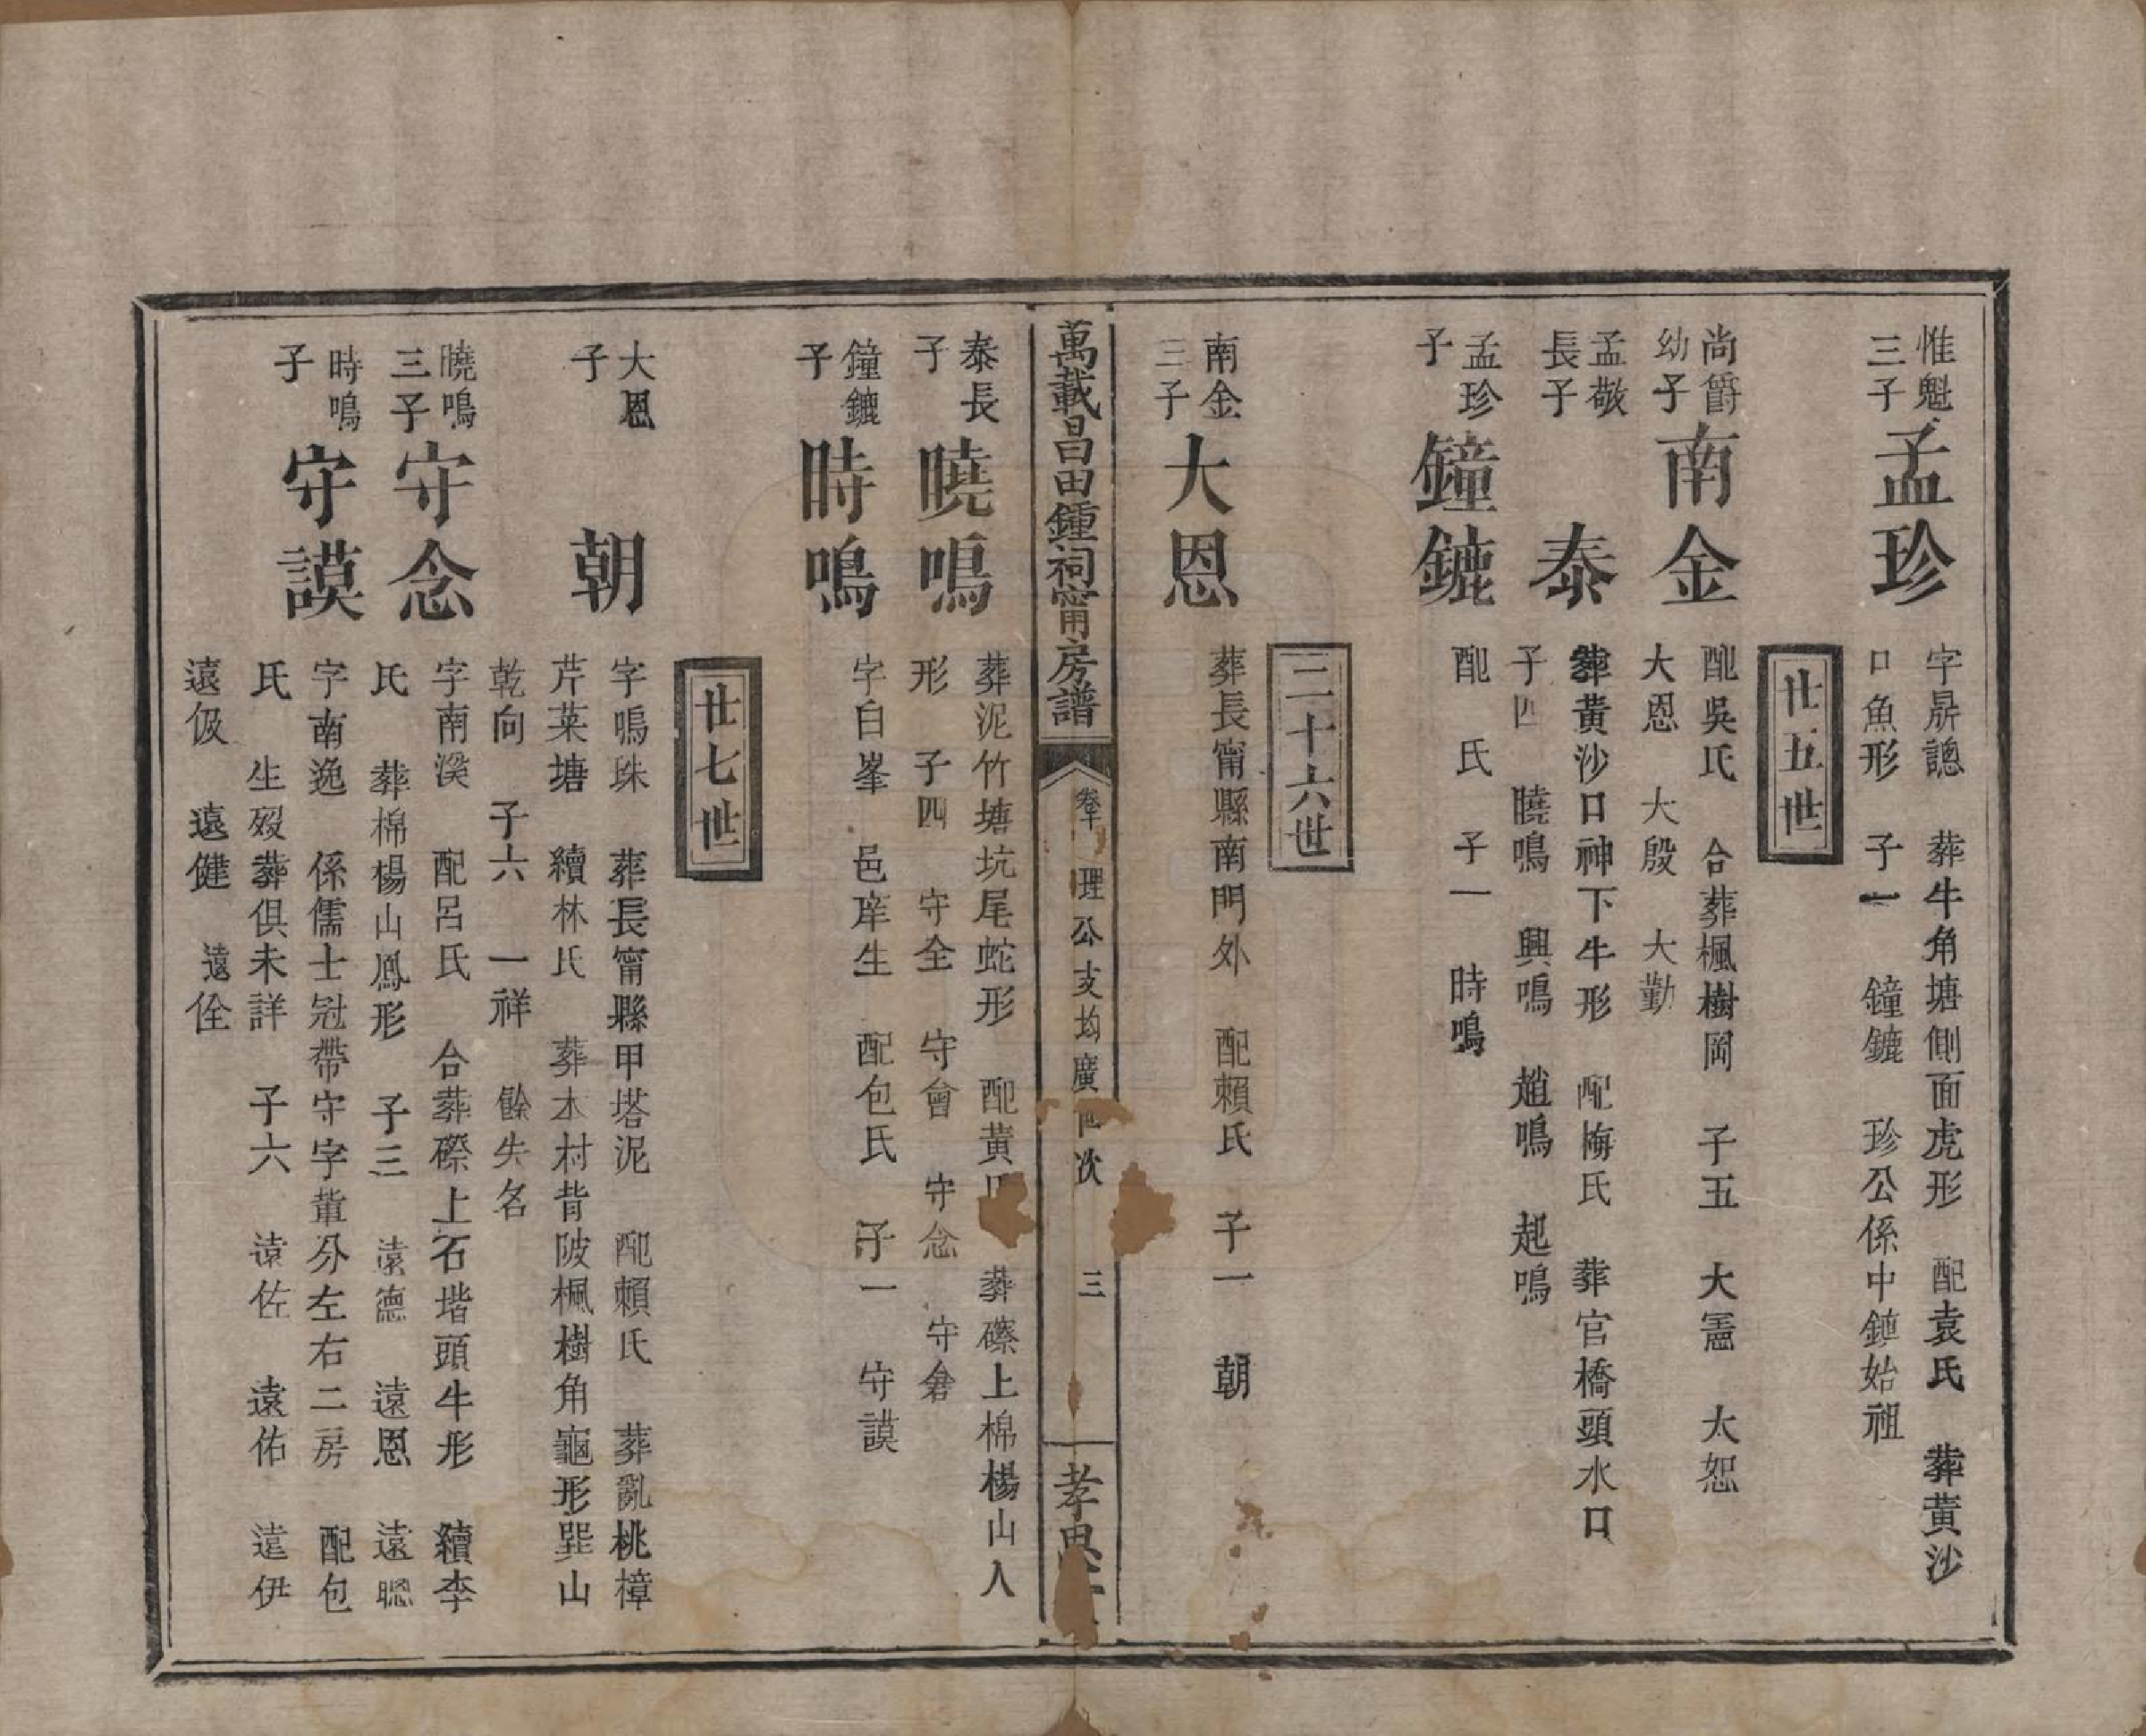 惟魁三子
孟珍
字鼎聰 葬牛角塘側面虎形 配袁氏 葬黃沙
口魚形 子一 鐘鏕 珍公係中鏕始祖
廿五世
尚爵幼子
南金
配吳氏 合葬楓樹岡 子五 大憲 太恕
大恩 大殷 大勤
孟敬長子
泰
葬黃沙口神下牛形 配梅氏 葬官橋頭水口
子四 曉鳴 興鳴 趙鳴 起鳴
孟珍子
鐘鏕
配 氏 子一 時鳴
二十六世
南金三子
大恩
葬長甯縣南門外 配賴氏 子一 朝
萬載昌田鍾祠甯房譜
理公支均廣 次
三
孝思
泰長子
曉鳴
葬泥竹塘坑尾蛇形 配黃 葬磜上棉楊山人
形 子四 守全 守會 守念 守倉
鐘鏕子
時鳴
字白峯 邑庠生 配包氏 子一 守謨
廿七世
大恩子
朝
字鳴珠 葬長甯縣甲塔泥 配賴氏 葬亂桃樟
芹菜塘 續林氏 葬木村背陂楓樹角龜形巽山
乾向 子六 一祥 餘失名
曉鳴三子
守念
字南溪 配呂氏 合葬磜上石堦頭牛形 續李
氏 葬棉楊山鳳形 子三 遠德 遠恩 遠聰
時鳴子
守謨
字南逸 係儒士冠帶守字輩分左右二房 配包
氏 生歿葬俱未詳 子六 遠佐 遠佑 遠伊
遠伋 遠健 遠佺